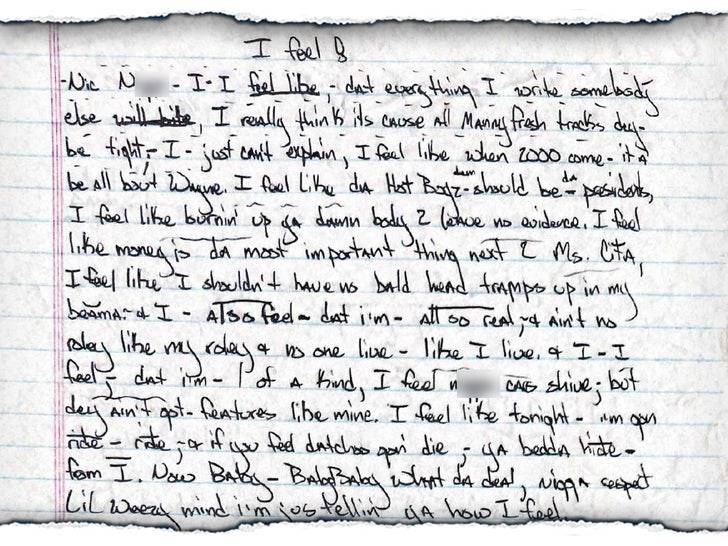 I feel
-Nic N - I-I feel like, - dat everything I write somebody
else will bite, I really think its cause All Manny fresh tracks dey-
be tight; - I - just can't explain, I feel like when 2000 come - it'
be All bout Wayne. I feel Like da Hot Boyz - should be - da presidents,
I feel like burnin' up ya damn body 2 leave no evidence. I feel
like money is da most important thing next 2 Ms. CitA,
I feel like I shouldn't have no bald head tramps up in my
beama - & I - Also feel - dat i'm - All so real, - & Ain't no
roley like my roley & no one live - like I live. & I - I
feel - dat i'm - 1 of A Kind, I feel n cAs shine; - but
dey Ain't got - features like mine. I feel like tonight - i'm gon
ride - ride ; - & if you feel datchoo gon' die ; - yA bedda hide -
from I. Now Baby - BabyBaby whAt dA deal, niggA respect
LiL Weezy mind i'm jus tellin' yA how I feel.